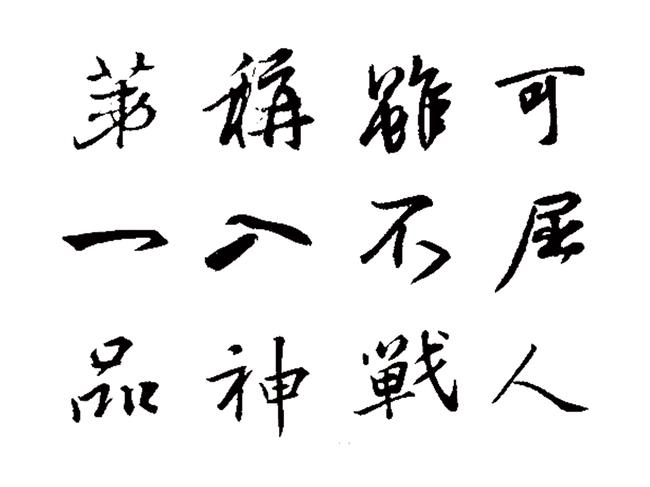 可屈人
雖不戰
稱入神
第一品